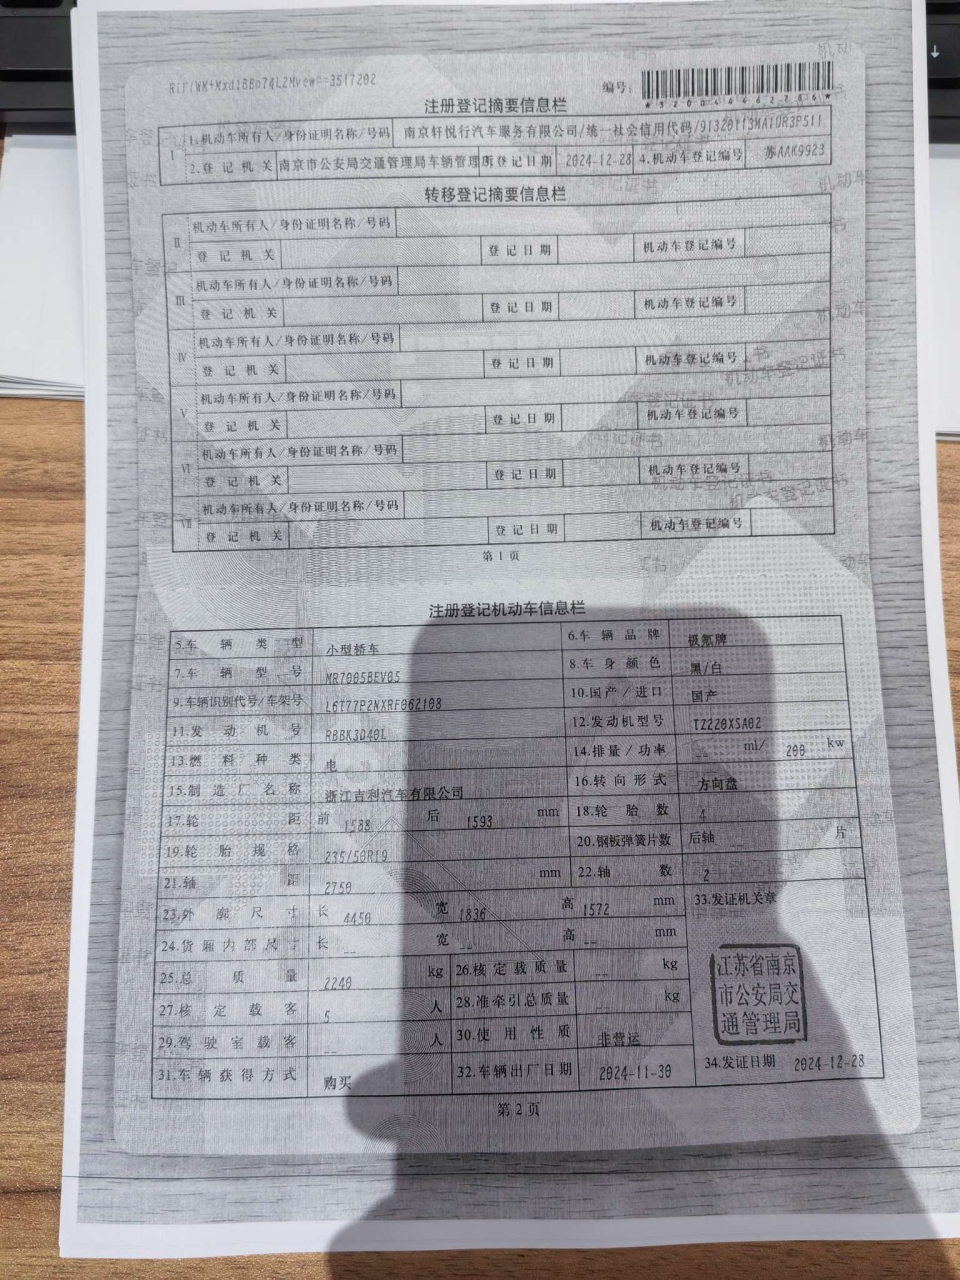 RiFiWM+Mxd1BBo74L2Mvew==3517202
编号:
*320044462786*
注册登记摘要信息栏
I 1.机动车所有人/身份证明名称/号码 南京轩悦行汽车服务有限公司/统一社会信用代码/91320113MA1UR3P511
2.登记机关 南京市公安局交通管理局车辆管理所 登记日期 2024-12-28 4.机动车登记编号 苏AAK9923
转移登记摘要信息栏
II 机动车所有人/身份证明名称/号码
登记机关 登记日期 机动车登记编号
III 机动车所有人/身份证明名称/号码
登记机关 登记日期 机动车登记编号
IV 机动车所有人/身份证明名称/号码
登记机关 登记日期 机动车登记编号
V 机动车所有人/身份证明名称/号码
登记机关 登记日期 机动车登记编号
VI 机动车所有人/身份证明名称/号码
登记机关 登记日期 机动车登记编号
VII 机动车所有人/身份证明名称/号码
登记机关 登记日期 机动车登记编号
第1页
注册登记机动车信息栏
5.车辆类型 小型轿车 6.车辆品牌 极氪牌
7.车辆型号 MR7005BEV05 8.车身颜色 黑/白
9.车辆识别代号/车架号 L6T77P2NXRF062108 10.国产/进口 国产
11.发动机号 RBBK3D40L 12.发动机型号 TZ220XSA02
13.燃料种类 电 14.排量/功率 -- ml/ 200 kw
15.制造厂名称 浙江吉利汽车有限公司 16.转向形式 方向盘
17.轮距 前 1588 后 1593 mm 18.轮胎数 4
19.轮胎规格 235/50R19 20.钢板弹簧片数 后轴 -- 片
21.轴距 2750 mm 22.轴数 2
23.外廓尺寸 长 4450 宽 1836 高 1572 mm 33.发证机关章
24.货厢内部尺寸 长 -- 宽 -- 高 -- mm
25.总质量 2240 kg 26.核定载质量 -- kg
27.核定载客 5 人 28.准牵引总质量 -- kg
29.驾驶室载客 -- 人 30.使用性质 非营运
江苏省南京
市公安局交
通管理局
31.车辆获得方式 购买 32.车辆出厂日期 2024-11-30 34.发证日期 2024-12-28
第2页